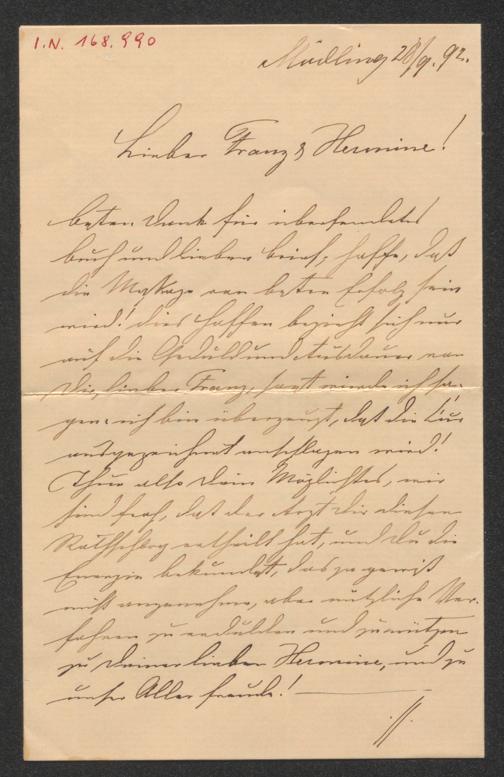 I.N. 168.990
Mödling 28/9. 92.
Lieber Franz & Hermine!
besten Dank für übersendetes
Buch und lieben Brief, hoffe, daß
die Massage von bestem Erfolg sein
wird! dies Hoffen bezieht sich nur
auf die Geduld und Ausdauer von
Dir, lieber Franz, sonst würde ich sa-
gen: ich bin überzeugt, daß die Cur
ausgezeichnet anschlagen wird!
Thue also Dein Möglichstes, wir
sind froh, daß der Arzt Dir diesen
Rathschlag ertheilt hat, und Du die
Energie bekundest, das ja gewiß
nicht angenehme, aber nützliche Ver-
fahren zu erdulden und zu nützen
zu Deiner lieben Hermine, und zu
unser Aller Freude! —